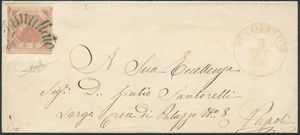 Annullato
A Sua Eccellenza
Sig. D. Giulio Santorelli
Largo Croce di Palazzo N. 3
Napoli